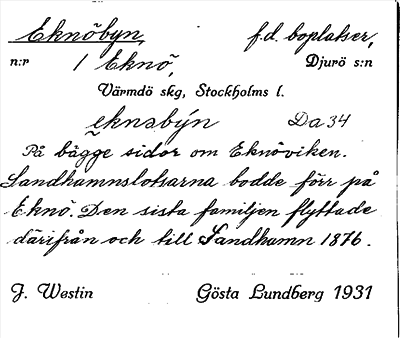 Eknöbyn, f.d. boplatser,
n:r 1 Eknö, Djurö s:n
Värmdö skg, Stockholms l.
eknəbýn Da 34
På bägge sidor om Eknöviken.
Sandhamnslotsarna bodde förr på
Eknö. Den sista familjen flyttade
därifrån och till Sandhamn 1876.
J. Westin Gösta Lundberg 1931